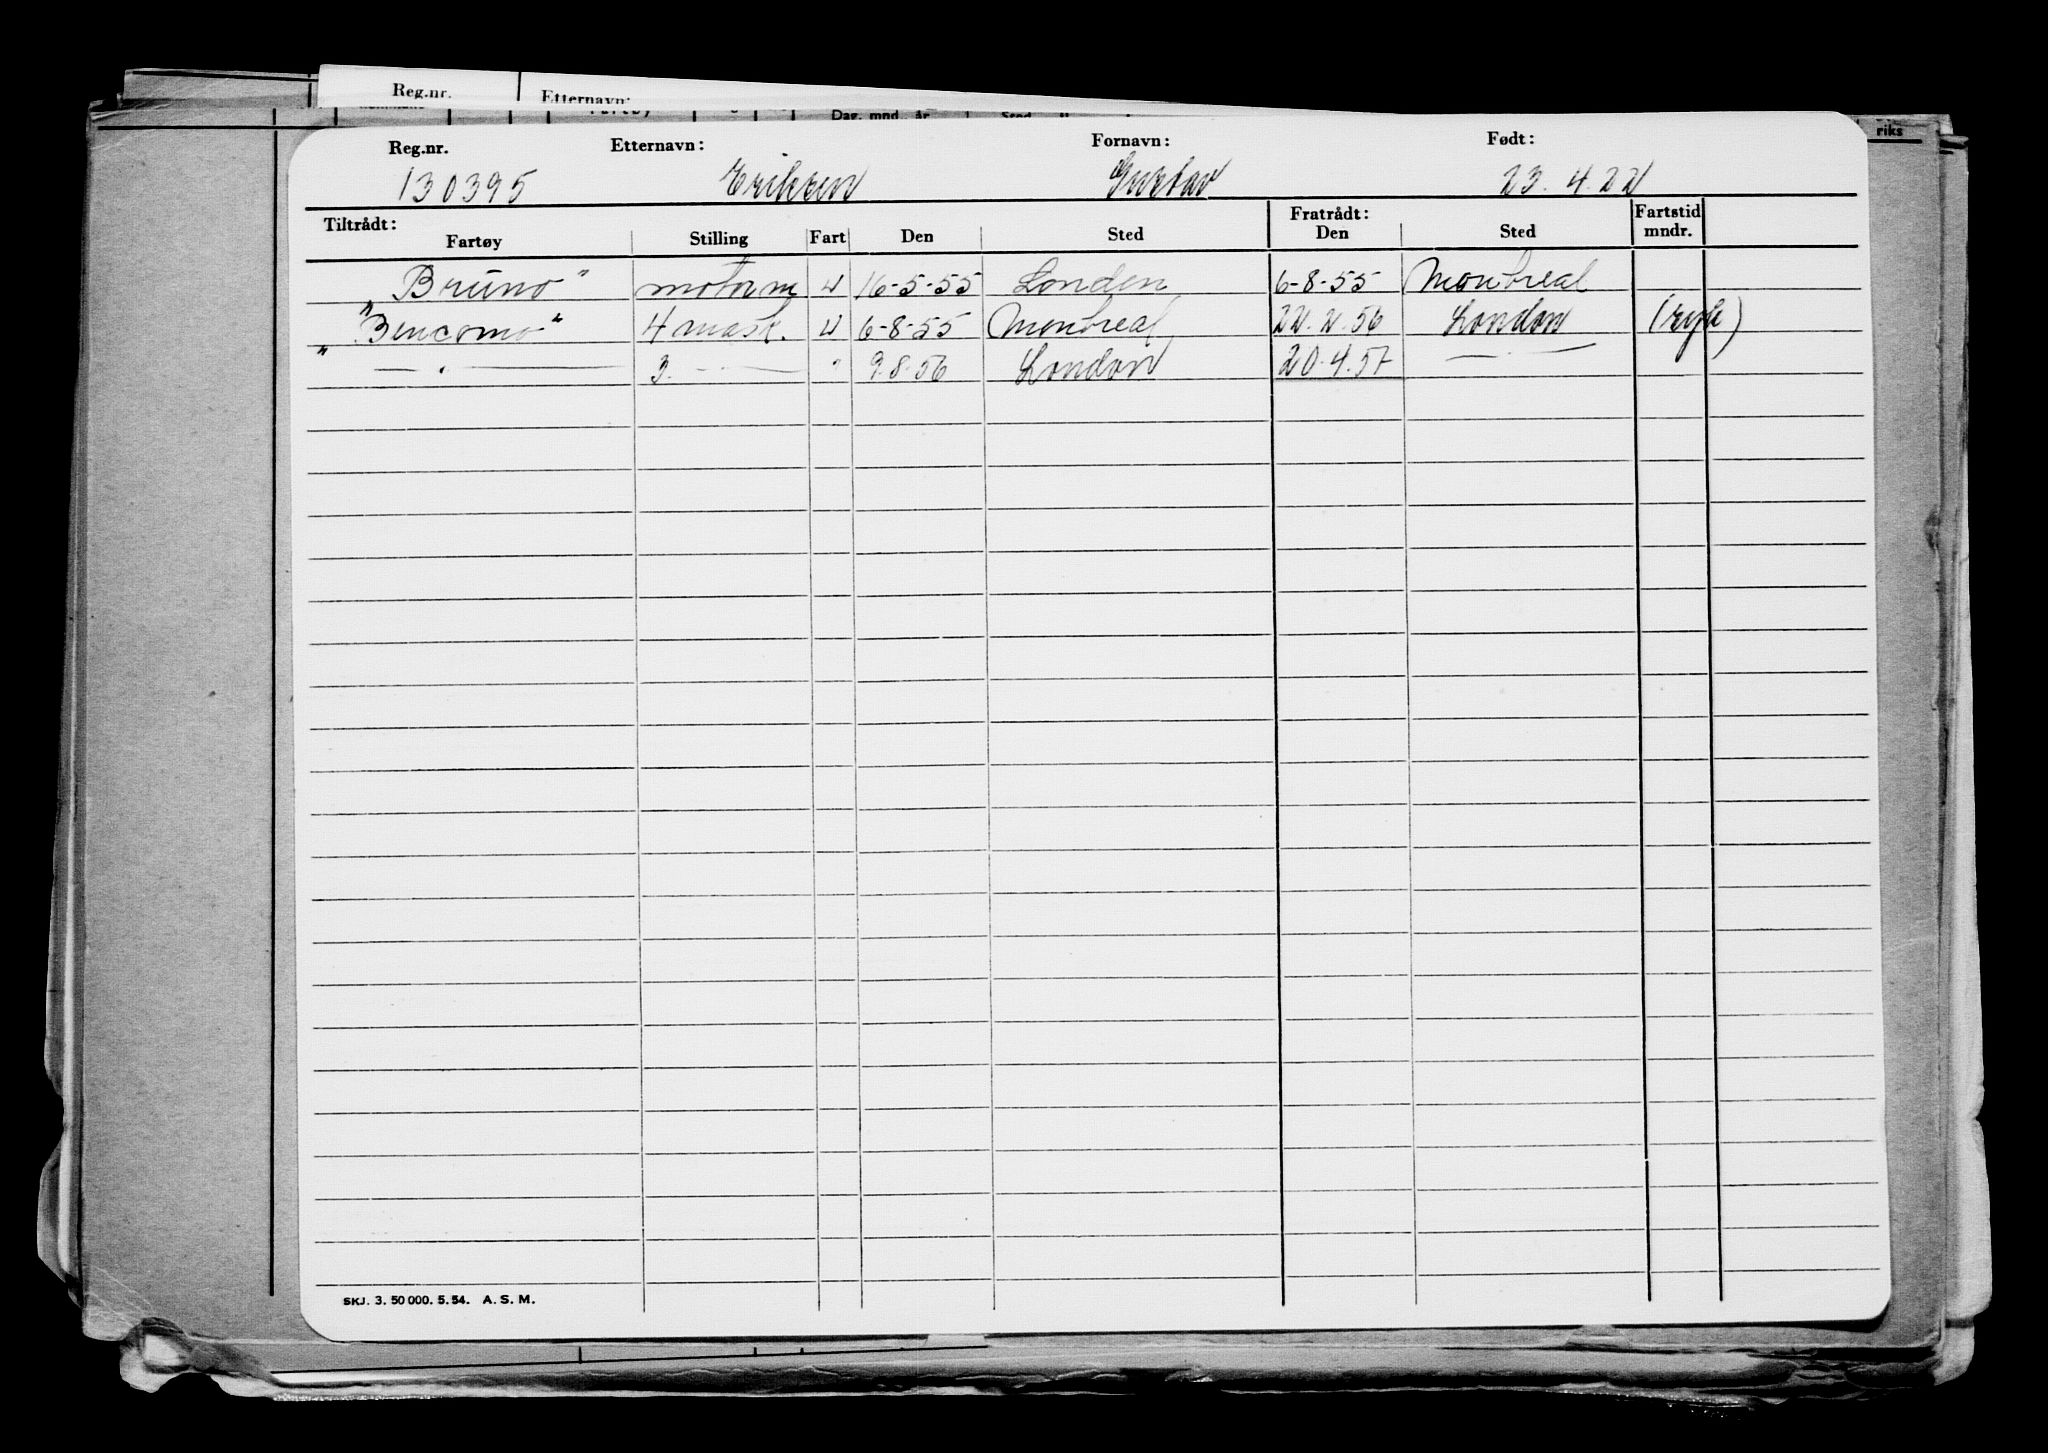 Reg.nr. Etternavn:
Dag. mnd. år
riks
Reg.nr. Etternavn: Fornavn: Født:
130395 Eriksen Gustav 23.4.22
Tiltrådt: Fratrådt: Fartstid
Fartøy Stilling Fart Den Sted Den Sted mndr.
Bruno" motorm U 16-5-55 London 6-8-55 Montreal
"Bencomo" 4 mask. U 6-8-55 Montreal 22.2.56 London
" — " — 3. — " — " 9.8.56 London 20.4.57 — " —
SKJ. 3. 50 000. 5. 54. A. S. M.